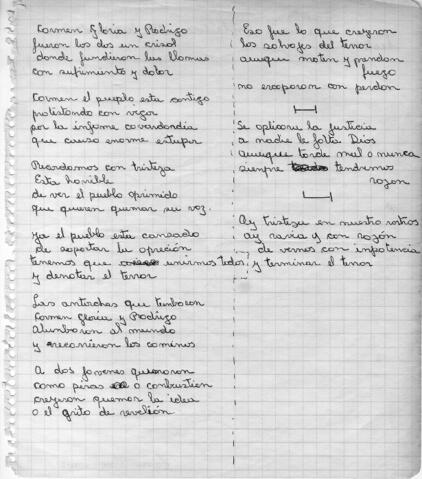 Carmen Gloria y Rodrigo
fueron los dos un crisol
donde fundieron las llamas
con sufrimento y dolor
Carmen el pueplo esta contigo
protistando con vigor
por la infame covardandia
que causo enorme estupor
Recordamos con tristeza
Esta horrible
de ver el pueblo oprimido
que quieren quemar su voz.
ya el pueblo esta cansado
de soportar la opreción
tenemos que unirnos todos
y derrotar el terror
Las antorchas que
Carmen Gloria y Rodrigo
Alunbaron al mundo
y recorrieron los caminos
A dos jovenes quemaron
como piras o conbustion
creyeron quemar la idea
o el grito de revelión
Eso fue lo que creyeron
los salvajes del terror
aunque maten y prendan
fuego
no escaparan con perdon
Se aplicara la justicia
a nadie le falta Dios
aunque tarde mal o nunca
sienpre tendremos
razon
Ay tristeza en nuestro rostros
ay ravia y con razón
de vernos con inpotencia
y terminar el terror